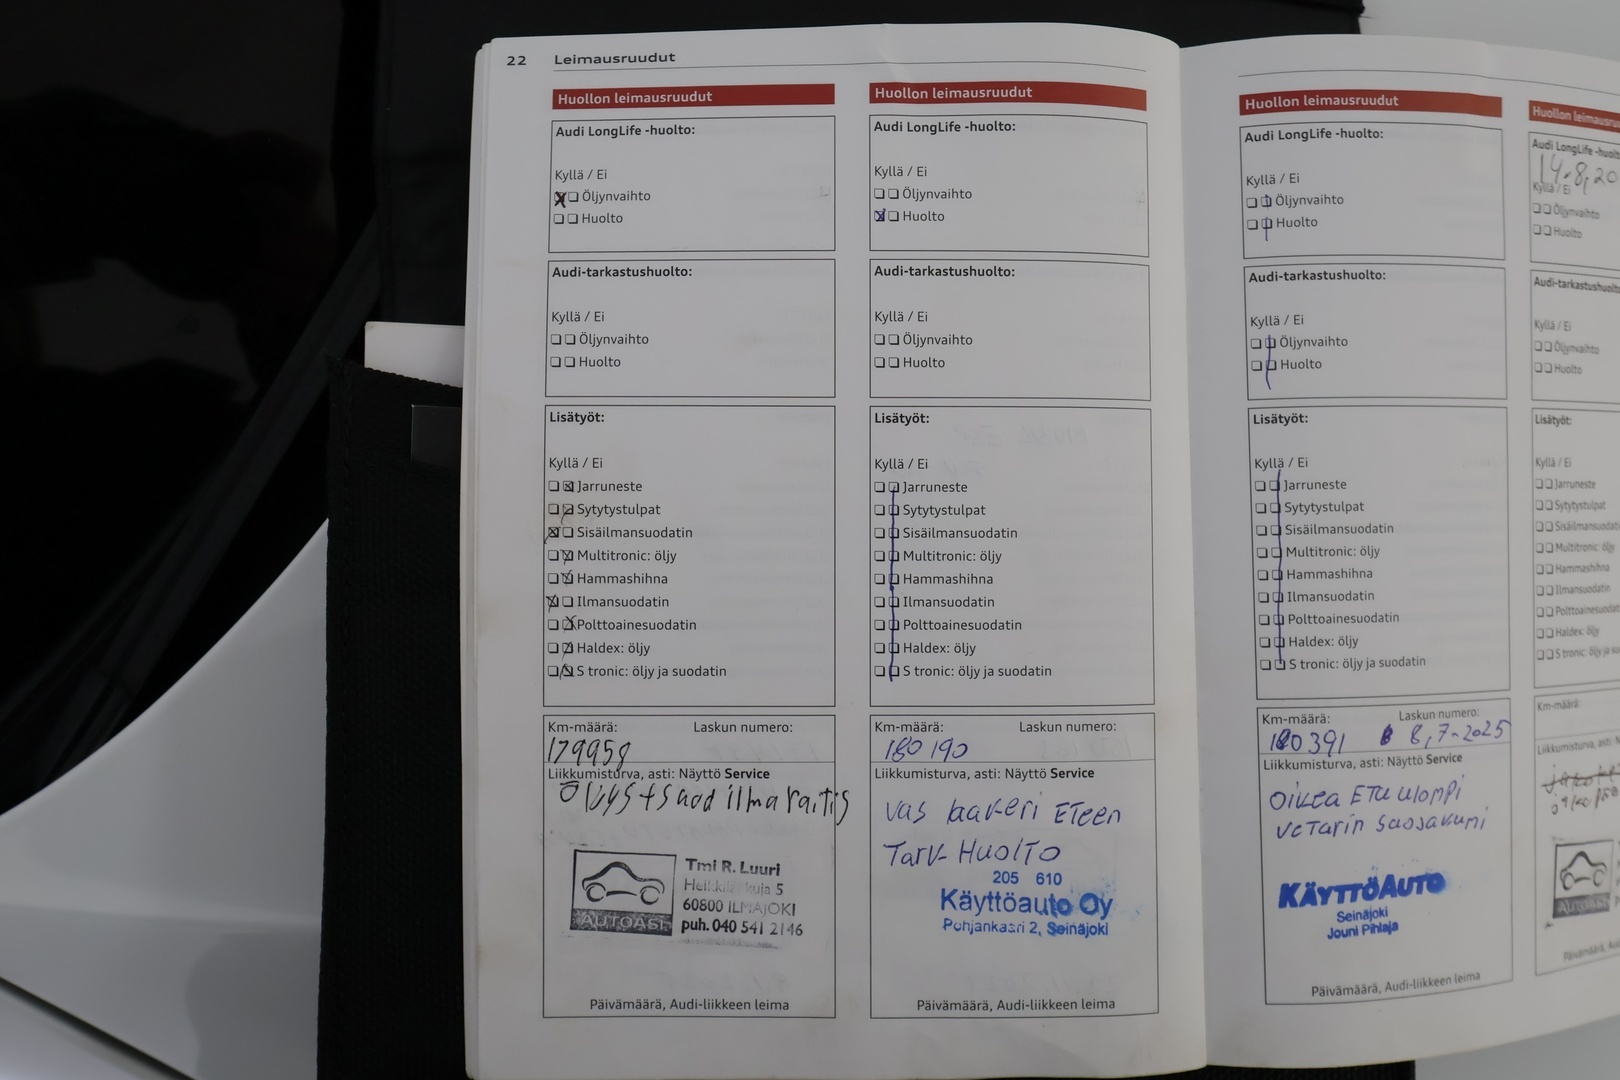 22 Leimausruudut
Huollon leimausruudut
Audi LongLife -huolto:
Kyllä / Ei
Öljynvaihto
Huolto
Audi-tarkastushuolto:
Kyllä / Ei
Öljynvaihto
Huolto
Lisätyöt:
Kyllä / Ei
Jarruneste
Sytytystulpat
Sisäilmansuodatin
Multitronic: öljy
Hammashihna
Ilmansuodatin
Polttoainesuodatin
Haldex: öljy
S tronic: öljy ja suodatin
Km-määrä: Laskun numero:
179958
Liikkumisturva, asti: Näyttö Service
Öljys+suod ilma raitis
Tmi R. Luuri
60800 ILMAJOKI
AUTOASI
puh. 040 541 2146
Päivämäärä, Audi-liikkeen leima
Huollon leimausruudut
Audi LongLife -huolto:
Kyllä / Ei
Öljynvaihto
Huolto
Audi-tarkastushuolto:
Kyllä / Ei
Öljynvaihto
Huolto
Lisätyöt:
Kyllä / Ei
Jarruneste
Sytytystulpat
Sisäilmansuodatin
Multitronic: öljy
Hammashihna
Ilmansuodatin
Polttoainesuodatin
Haldex: öljy
S tronic: öljy ja suodatin
Km-määrä: Laskun numero:
180 190
Liikkumisturva, asti: Näyttö Service
Vas laakeri ETeen
Tark HuolTo
205 610
Käyttöauto Oy
Pohjankaari 2, Seinäjoki
Päivämäärä, Audi-liikkeen leima
Huollon leimausruudut
Audi LongLife -huolto:
Kyllä / Ei
Öljynvaihto
Huolto
Audi-tarkastushuolto:
Kyllä / Ei
Öljynvaihto
Huolto
Lisätyöt:
Kyllä / Ei
Jarruneste
Sytytystulpat
Sisäilmansuodatin
Multitronic: öljy
Hammashihna
Ilmansuodatin
Polttoainesuodatin
Haldex: öljy
S tronic: öljy ja suodatin
Km-määrä: Laskun numero:
180391 8,7-2025
Liikkumisturva, asti: Näyttö Service
Oikea ETu ulompi
veTarin suojakumi
KÄYTTÖAUTO
Seinäjoki
Jouni Pihlaja
Päivämäärä, Audi-liikkeen leima
Huollon leimausru
Audi LongLife -huolt
14.8,20
Kyllä / Ei
Öljynvaihto
Huolto
Audi-tarkastushuolto
Kyllä / Ei
Öljynvaihto
Huolto
Lisätyöt:
Kyllä / Ei
Jarruneste
Sytytystulpat
Sisäilmansuodat
Multitronic: öljy
Hammashihna
Ilmansuodatin
Polttoainesuodat
Haldex: öljy
S tronic: öljy ja su
Km-määrä
Liikkumisturva, asti: N
AUTOASI
Päivämäärä, Au